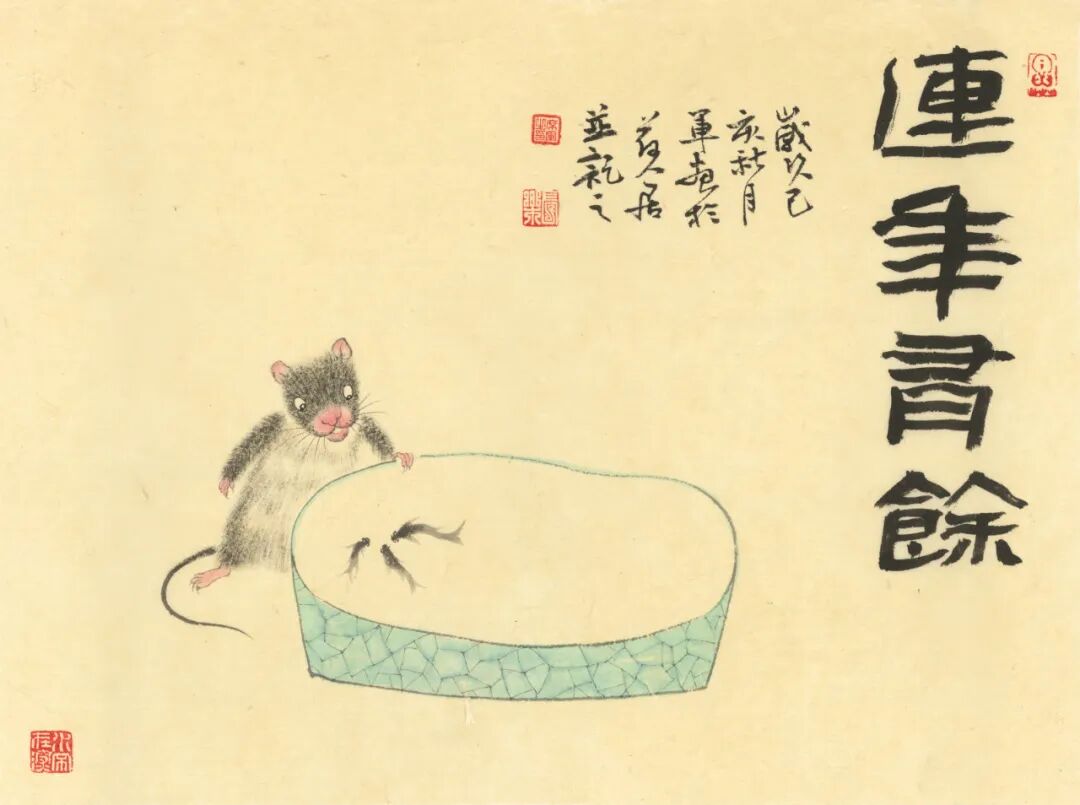 連年有餘
歲次己
亥秋月
軍畫於
人居
並記之